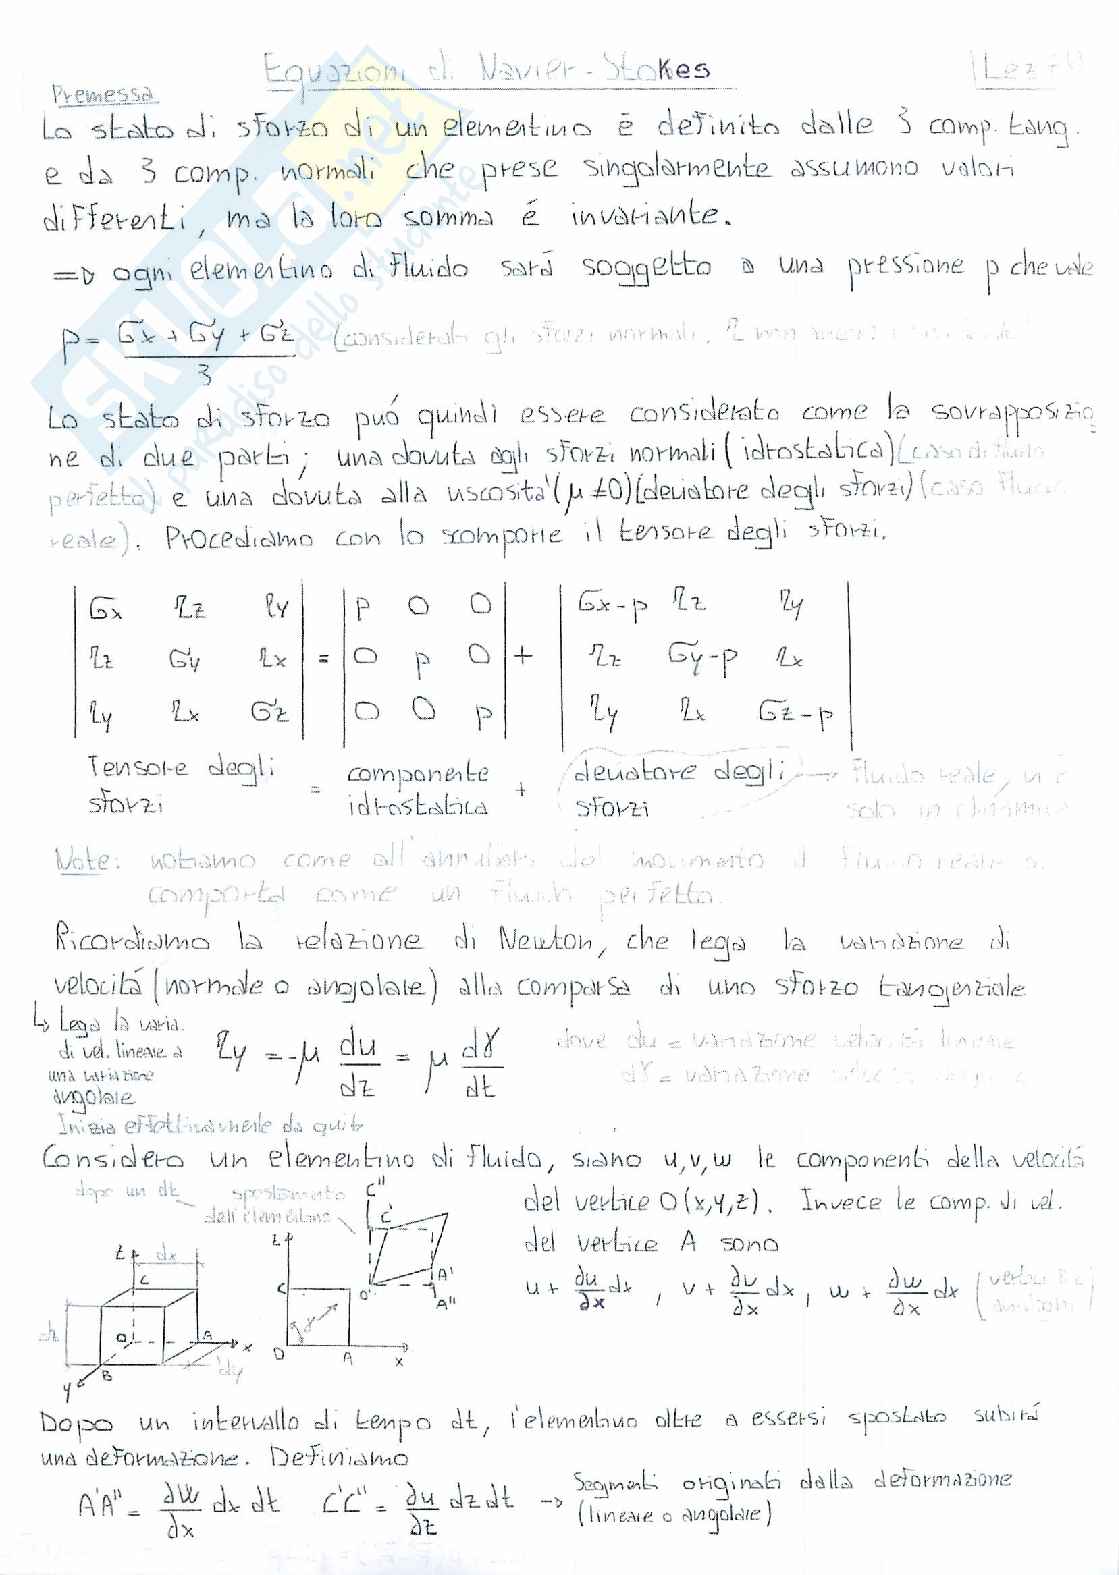 Equazioni di Navier-Stokes
Premessa
Lo stato di sforzo di un elementino è definito dalle 3 comp. tang.
e da 3 comp. normali che prese singolarmente assumono valori
differenti, ma la loro somma é invariante.
=> ogni elementino di fluido sará soggetto a una pressione p che vale
p = (σx + σy + σz)/3 (considerati gli sforzi normali,
Lo stato di sforzo puó quindi essere considerato come la sovrapposizio
ne di due parti; una dovuta agli sforzi normali (idrostatica) (caso di fluido
perfetto) e una dovuta alla viscosita' (μ ≠0) (deviatore degli sforzi) (caso fluido
reale). Procediamo con lo scomporre il tensore degli sforzi.
| σx τz τy | = | p 0 0 | + | σx-p τz τy |
| τz σy τx | = | 0 p 0 | + | τz σy-p τx |
| τy τx σz | = | 0 0 p | + | τy τx σz-p |
Tensore degli sforzi = componente idrostatica + deviatore degli sforzi → fluido reale,
solo in dinamica
Note: notiamo come all'annullarsi del movimento il fluido reale si
comporta come un fluido perfetto.
Ricordiamo la relazione di Newton, che lega la variazione di
velocitá (normale o angolare) alla comparsa di uno sforzo tangenziale
↳ Lega la varia.
di vel. lineare a
una variazione
angolare
τy = -μ du/dz = μ dγ/dt dove du = variazione velocità lineare
dγ = variazione
Inizia effettivamente da qui
Considero un elementino di fluido, siano u,v,w le componenti della velocitá
del vertice O(x,y,z). Invece le comp. di vel.
del vertice A sono
u + ∂u/∂x dx , v + ∂v/∂x dx , w + ∂w/∂x dx
dopo un dt
spostamento
dell'elementino
z dx
C
O A x
B dy
y
z C' C''
C
O' A'
A''
γ
O A x
Dopo un intervallo di tempo dt, l'elementino oltre a essersi spostato subirá
una deformazione. Definiamo
A'A'' = ∂w/∂x dx dt C'C'' = ∂u/∂z dz dt → Segmenti originati dalla deformazione
(lineare o angolare)
SKUOLA.net
il paradiso dello studente